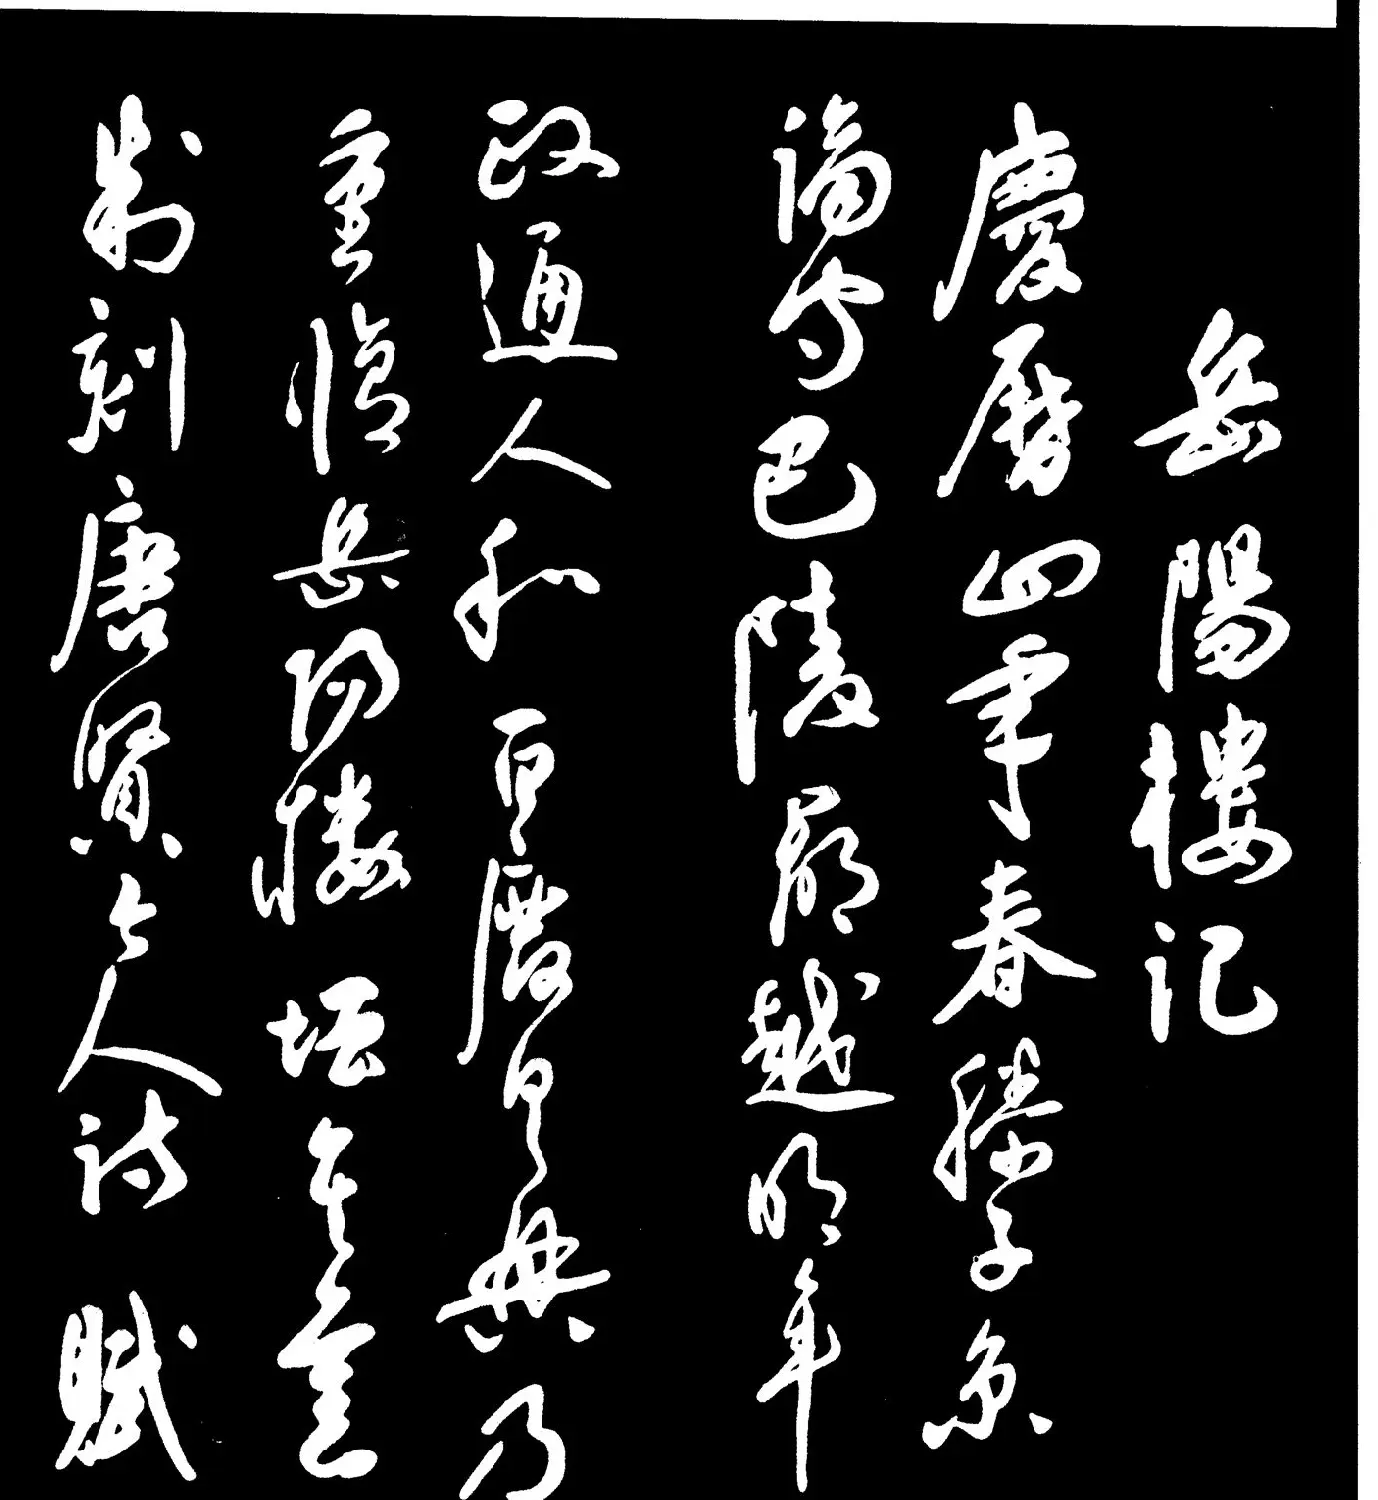 岳陽樓記
慶曆四年春滕子京
謫守巴陵郡越明年
政通人和百廢具興乃
重修岳陽樓增其舊
制刻唐賢今人詩賦